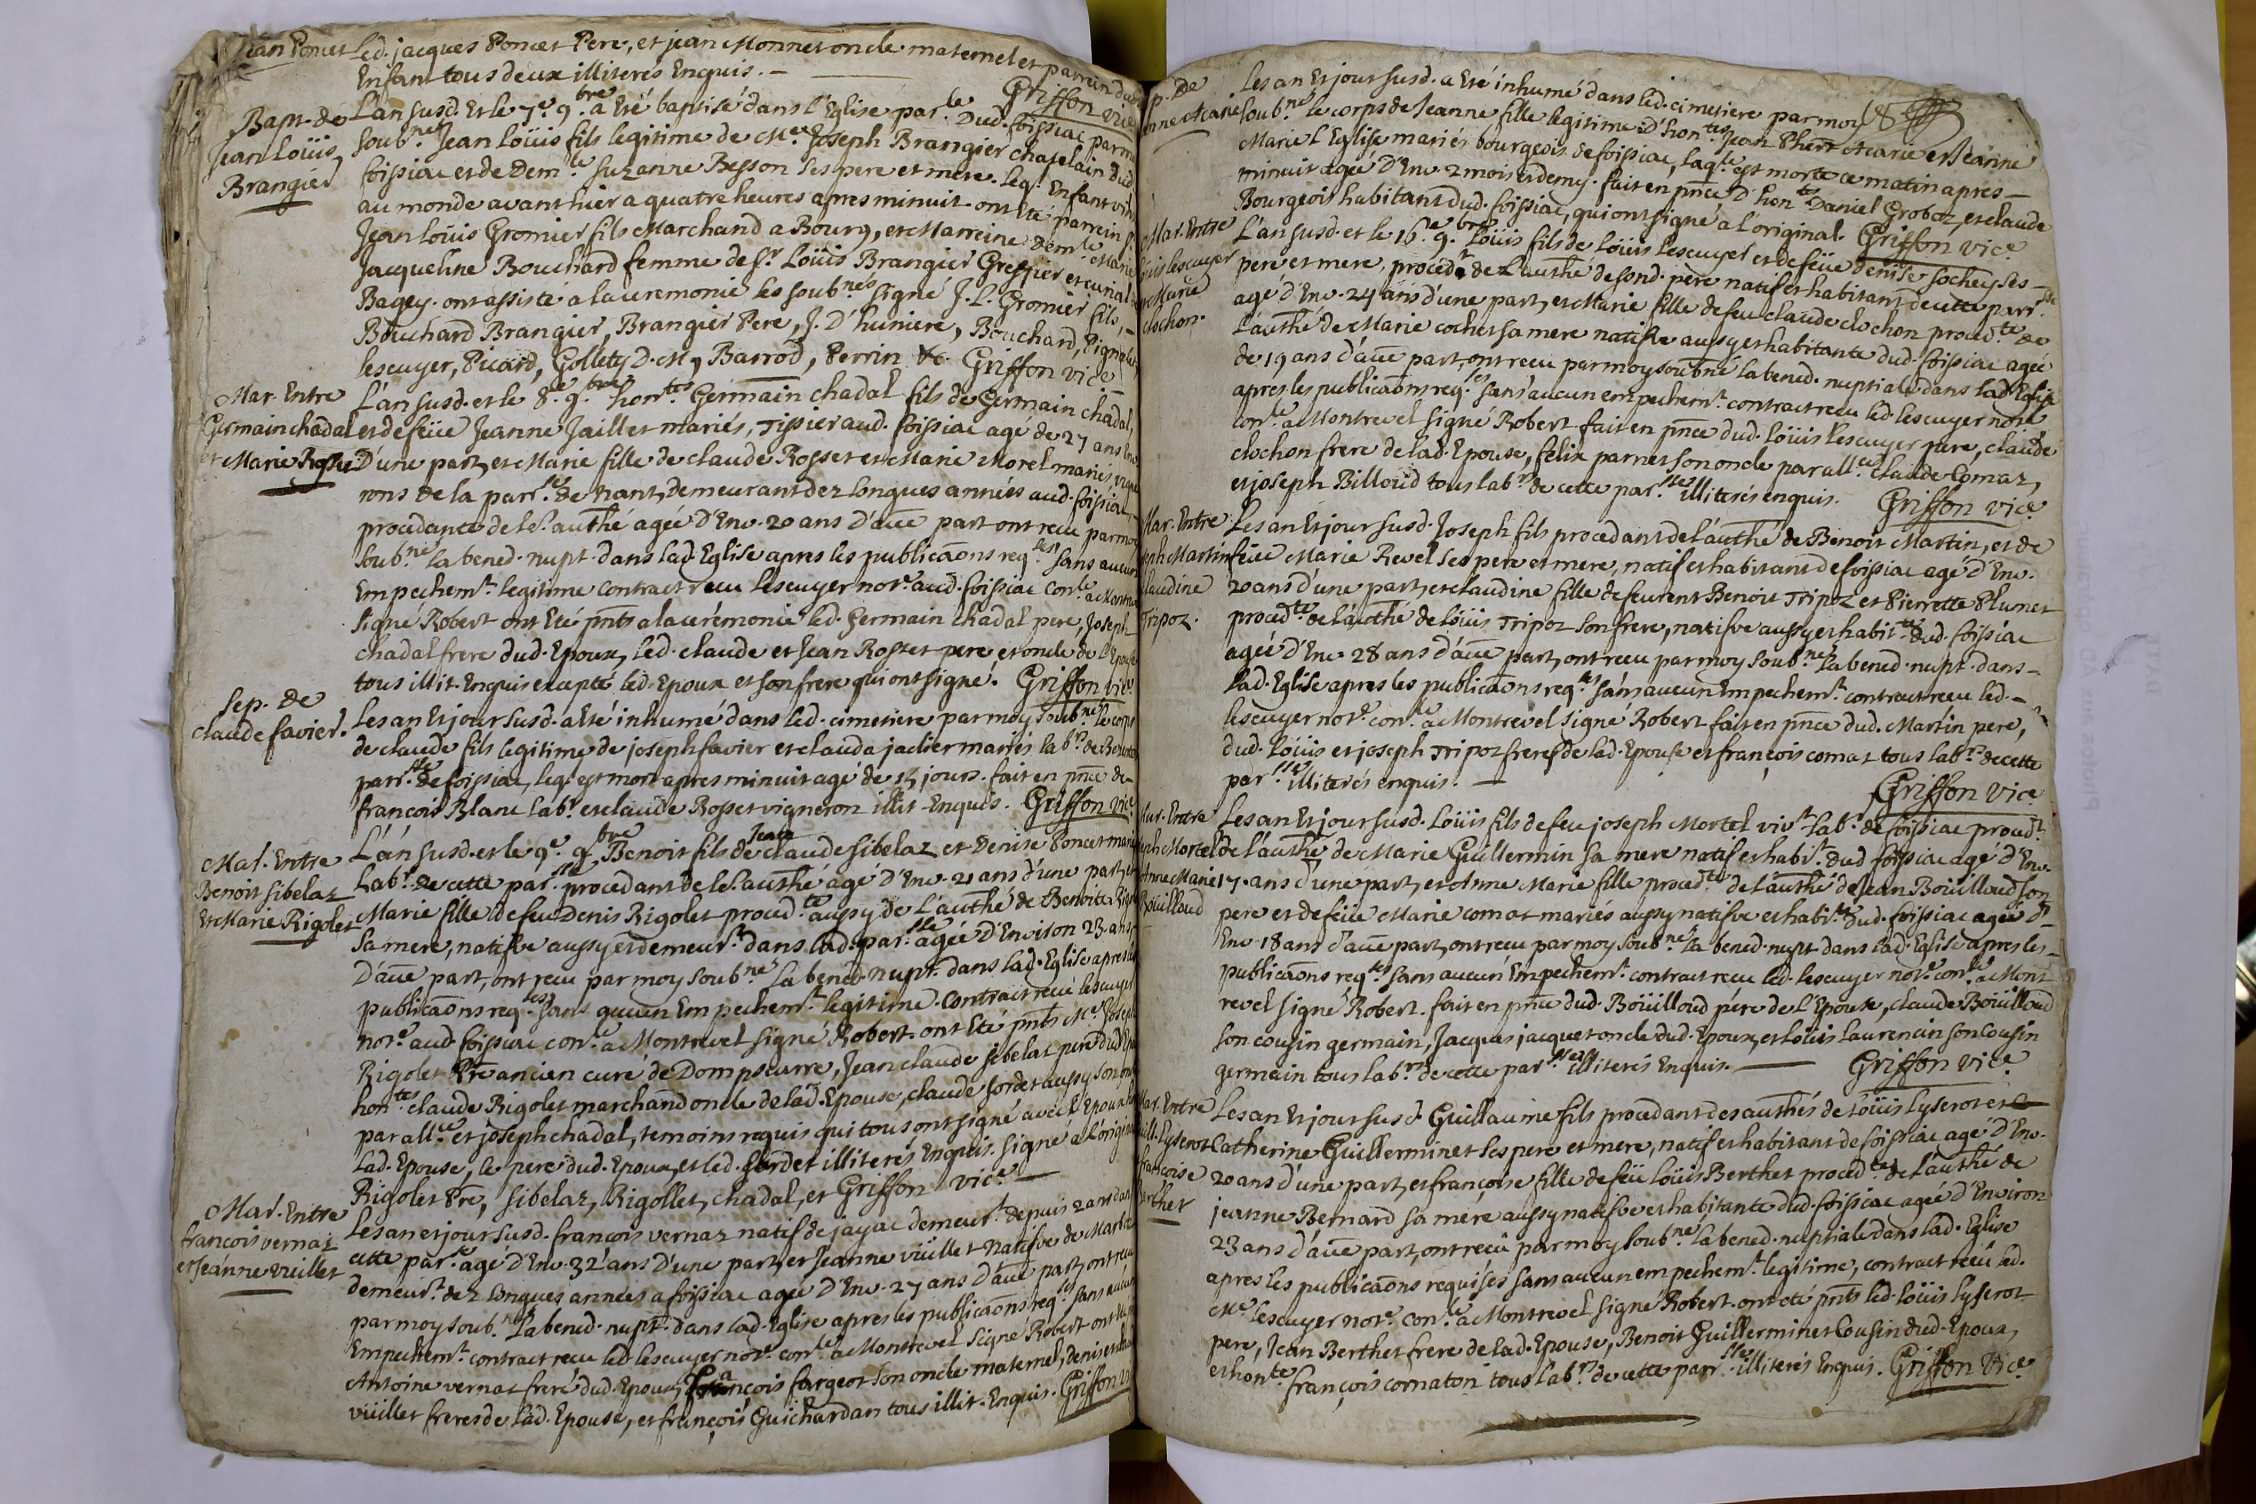 Jean Poncet
Led. jacques Poncet Pere, et jean Monnet oncle maternel et parrein dud.
Enfant tous deux illiterés Enquis. —
Griffon vic.e
Bapt. de
Jean Loüis
Brangier
L'an susd. et le 7.e 9.bre a Eté baptisé dans l'Eglise par.le Dud. foissiac par moy
soub.né Jean Loüis fils legitime de M.e Joseph Brangier chatelain Dud.
foissiac et de Dem.lle Suzanne Besson ses pere et mere. leq. Enfant vint
au monde avant hier a quatre heures apres minuit. ont Eté parrein S.r
Jean Loüis Gromier fils Marchand a Bourg, et Marreine dem.le Marie
Jacqueline Bouchard femme de S.r Loüis Brangier Greffier et curial de
Bagey. ont assisté a la ceremonie les soub.nes signé J. L. Gromier fils,
Bouchard Brangier, Brangier Pere, J. D'huniere, Bouchard,
lescuyer, Picard, Gollety D. M, Barrod, Perrin &c. Griffon vic.e
Mar. Entre
Germain chadal
et Marie Rosset
L'an susd. et le 8.e 9.bre hon.tes Germain chadal fils de Germain chadal,
et de feüe Jeanne Jaillet mariés, Tissier aud. foissiac agé de 27 ans Env.
D'une part, et Marie fille de claude Rosset et Marie Morel mariés, vigne
rons de la parr.se de Nant, demeurant dez longues années aud. foissiac,
procedante de le.r authé agée D'Env. 20 ans d'aûe part ont recu par moy
soub.né la bened. nupt. dans lad. Eglise apres les publicaõns req.ses sans aucun
Empechem.t legitime contract recu lescuyer not.e aud. foissiac con.le a Montrevel
signé Robert ont Eté pñts a la cérémonie led. Germain chadal pere, Joseph
chadal frere dud. Epoux, led. claude et Jean Rosset pere et oncle de l'Epouse
tous illit. Enquis excepté led. Epoux et son frere qui ont signé. Griffon vic.e
Sep. de
claude favier.
Les an Et jour susd. a Eté inhumé dans led. cimetiere par moy soub.né le corps
de claude fils legitime de joseph favier et clauda jaclier mariés lab.rs de
parr.se de foissiac, leq. est mort apres minuit agé de 15 jours. fait en pñce de
françois Blanc lab.r et claude Rosset vigneron illit. Enquis. Griffon vic.e
Mar. Entre
Benoit Sibelaz
Et Marie Rigolet
L'an susd. et le 9.e 9.bre Benoit fils de Jean claude Sibelaz et Denise Poncet mariés
Lab.rs de cette par.sse procedant de le.r authé agé D'Env. 21 ans d'une part, et
Marie fille de feu Denis Rigolet proced.te aussy de L'authé de Benoite
sa mere, natifve aussy et demeur.t dans lad. par.sse agée d'Environ 23 ans
D'aûe part, ont recu par moy soub.né la bened. nupt. dans lad. Eglise apres les
publicaõns req.ses sans aucun Empechem.t legitime. Contract recu lescuyer
not.e aud. foissiac con.lé a Montrevel signé Robert. ont Eté pñts M.e Joseph
Rigolet Prê ancien curé de Dompseurre, Jean claude Sibelaz pere dud. Epoux
hon.tes claude Rigolet marchand oncle de lad. Epouse, claude Sordet aussy son oncle
par all.ce et joseph chadal, temoins requis qui tous ont signé avec l'Epoux
Lad. Epouse, le pere dud. Epoux, et led. Sordet illiterés Enquis. signé a l'original
Rigolet Prê, Sibelaz, Rigollet, chadal, et Griffon vic.e —
Mar. Entre
françois vernaz
et Jeanne vuillet
Les an et jour susd. françois vernaz natif de jayac demeur.t depuis 2 ans dans
cette par.sse agé D'Env. 32 ans D'une part, et Jeanne vüillet natifve de
demeur.t dez longues années a foissiac agée D'Env. 27 ans d'aûe part, ont recu
par moy soub.né la bened. nupt. dans lad. Eglise apres les publicaõns req.ses sans aucun
Empechem.t contract recu led. lescuyer not.e con.lé a Montrevel signé Robert ont Eté pñts
Antoine vernaz frere dud. Epoux, françois fargeot son oncle maternel, denis et
vüillet freres de lad. Epouse, et françois Guichardan tous illit. Enquis. Griffon vic.e
p. De
nne Acarie
Les an Et jour susd. a Eté inhumé dans led. cimetiere par moy
soub.né le corps de Jeanne fille legitime D'hon.tes Jean Phert Acarie et Jeanne
Marie L Eglise mariés bourgeois de foissiac, laq.le est morte ce matin apres
minuit agée D'Env. 2 mois et demy. fait en pñce D'hon.tes Daniel Groboz, et claude
Bourgeois habitant dud. foissiac, qui ont signé a l'original. Griffon vic.e
Mar. Entre
loüis lescuyer
et Marie
clochon.
L'an susd. et le 16.e 9.bre Loüis fils de Loüis lescuyer et de feüe denise Sochey ses
pere et mere, proced.t de L'authé de sond. père natif et habitant de cette parr.sse
agé d'Env. 24 ans d'une part, et Marie fille de feu claude clochon proced.te de
L'authé de Marie cochet sa mere natifve aussy et habitante dud. foissiac agée
de 19 ans d'aûe part, ont recu par moy soubné la bened. nuptiale dans lad. Eglise
apres les publicaõns req.ses sans aucun empechem.t contract recu led. lescuyer not.e
con.lé a Montrevel signé Robert fait en pñce dud. Loüis lescuyer pere, claude
clochon frere de lad. Epouse, felix parnet son oncle par all.ce claude Comaz,
et joseph Billoud tous lab.rs de cette par.sse illiterés enquis. Griffon vic.e
Mar. Entre
seph Martin
laudine
Tripoz.
Les an Et jour susd. Joseph fils procedant de l'authé de Benoit Martin, et de
feüe Marie Revel ses pere et mere, natif et habitant de foissiac agé d'Env.
20 ans d'une part, et claudine fille de feurent Benoit Tripoz et Pierrette Plumet
proced.te de l'authé de Loüis Tripoz son frere, natifve aussy et habit.te dud. foissiac
agée D'Env. 28 ans d'aûe part, ont recu par moy soub.né la bened. nupt. dans
lad. Eglise apres les publicaõns req.ses sans aucun Empechem.t contract recu led.
lescuyer not.e con.lé a Montrevel signé Robert fait en pñce dud. Martin pere,
dud. Loüis et joseph Tripoz freres de lad. Epouse et françois comaz tous lab.rs de cette
par.sse illiterés enquis. —
Griffon vic.e
Mar. Entre
Morcel
Anne Marie
Boüillaud
Les an Et jour susd. Loüis fils de feu joseph Mortel viv.t lab.r de foissiac proced.t
de l'authé de Marie Guillermin sa mere natif et habi.t dud. foissiac agé d'Env.
17 ans d'une part, et Anne Marie fille proced.te de l'authé de Jean Boüilloud son
pere et de feüe Marie comat mariés aussy natifve et habi.te dud. foissiac agée d'
Env. 18 ans d'aûe part, ont recu par moy soub.né la bened. nupt. dans lad. Eglise apres les
publicaõns req.ses sans aucun Empechem.t contract recu led. lescuyer not.e con.lé a Mont
revel signé Robert. fait en pñce dud. Boüilloud pere de l'Epouse, claude Boüilloud
son cousin germain, Jacques jacquet oncle dud. Epoux, et Loüis Laurencin son Cousin
germain tous lab.rs de cette par.sse illiterés Enquis. — Griffon vic.e
Mar. Entre
uill. Lyserot
françoise
Berthet
Les an Et jour susd. Guillaume fils procedant des authés de Loüis Lyserot et
Catherine Guillerminet ses pere et mere, natif et habitant de foissiac agé d'Env.
20 ans d'une part, et françoise fille de feu Loüis Berthet proced.te de l'authé de
jeanne Bernard sa mere aussy natifve et habitante dud. foissiac agée d'Environ
23 ans d'aûe part, ont recû par moy soub.né la bened. nuptiale dans lad. Eglise
apres les publicaõns requises sans aucun empechem.t legitime, contract recû led.
M.e lescuyer not.e con.lé a Montrevel signé Robert. ont eté pñts led. Loüis lyserot
pere, Jean Berthet frere de lad. Epouse, Benoit Guillerminet Cousin dud. Epoux,
et hon.te françois cornaton tous lab.rs de cette parr.sse illiterés Enquis. Griffon Vic.e